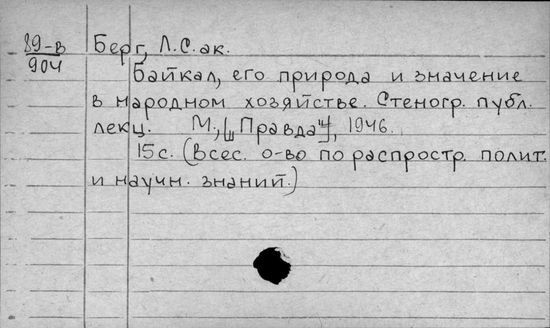 89-в Берг, Л.С. ак.
904
Байкал, его природа и значение
в народном хозяйстве. Стеногр. публ.
лекц. М., [„Правда"], 1946.
15 с. (Всес. о-во по распростр. полит.
и научн. знаний.)